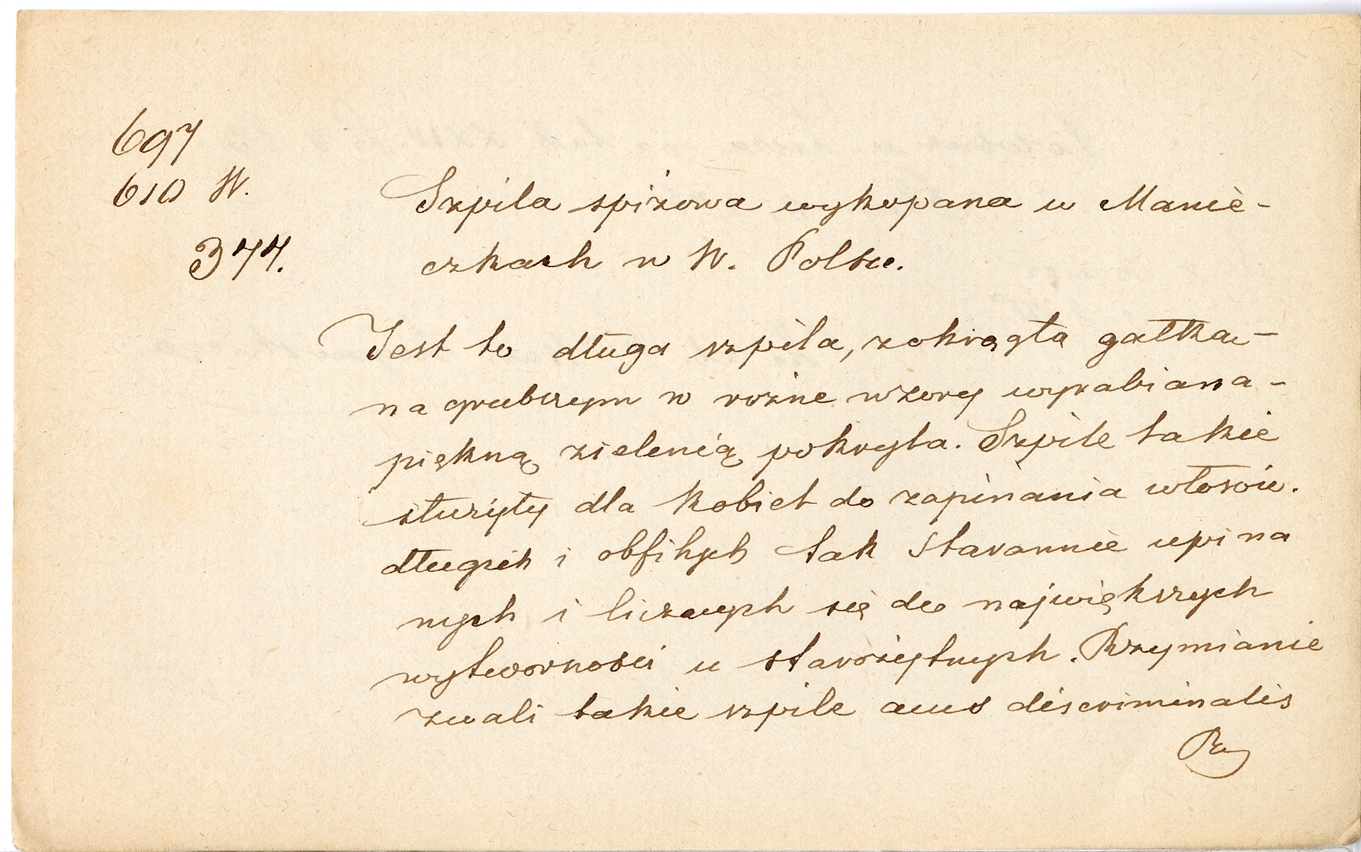 697
610 W.
377.
Szpila spiżowa wykopana w Manie-
czkach w W. Polsce.
Jest to długa szpila, z okrągła gałka-
na grubszym w rożne wzory wyrabiana-
piękną zielenią pokryta. Szpile takie
służyły dla kobiet do zapinania włosów.
długich i obfitych tak starannie upina
nych i liczących się do największych
wytworności u starożytnych. Rzymianie
zwali takie szpile acus discriminalis